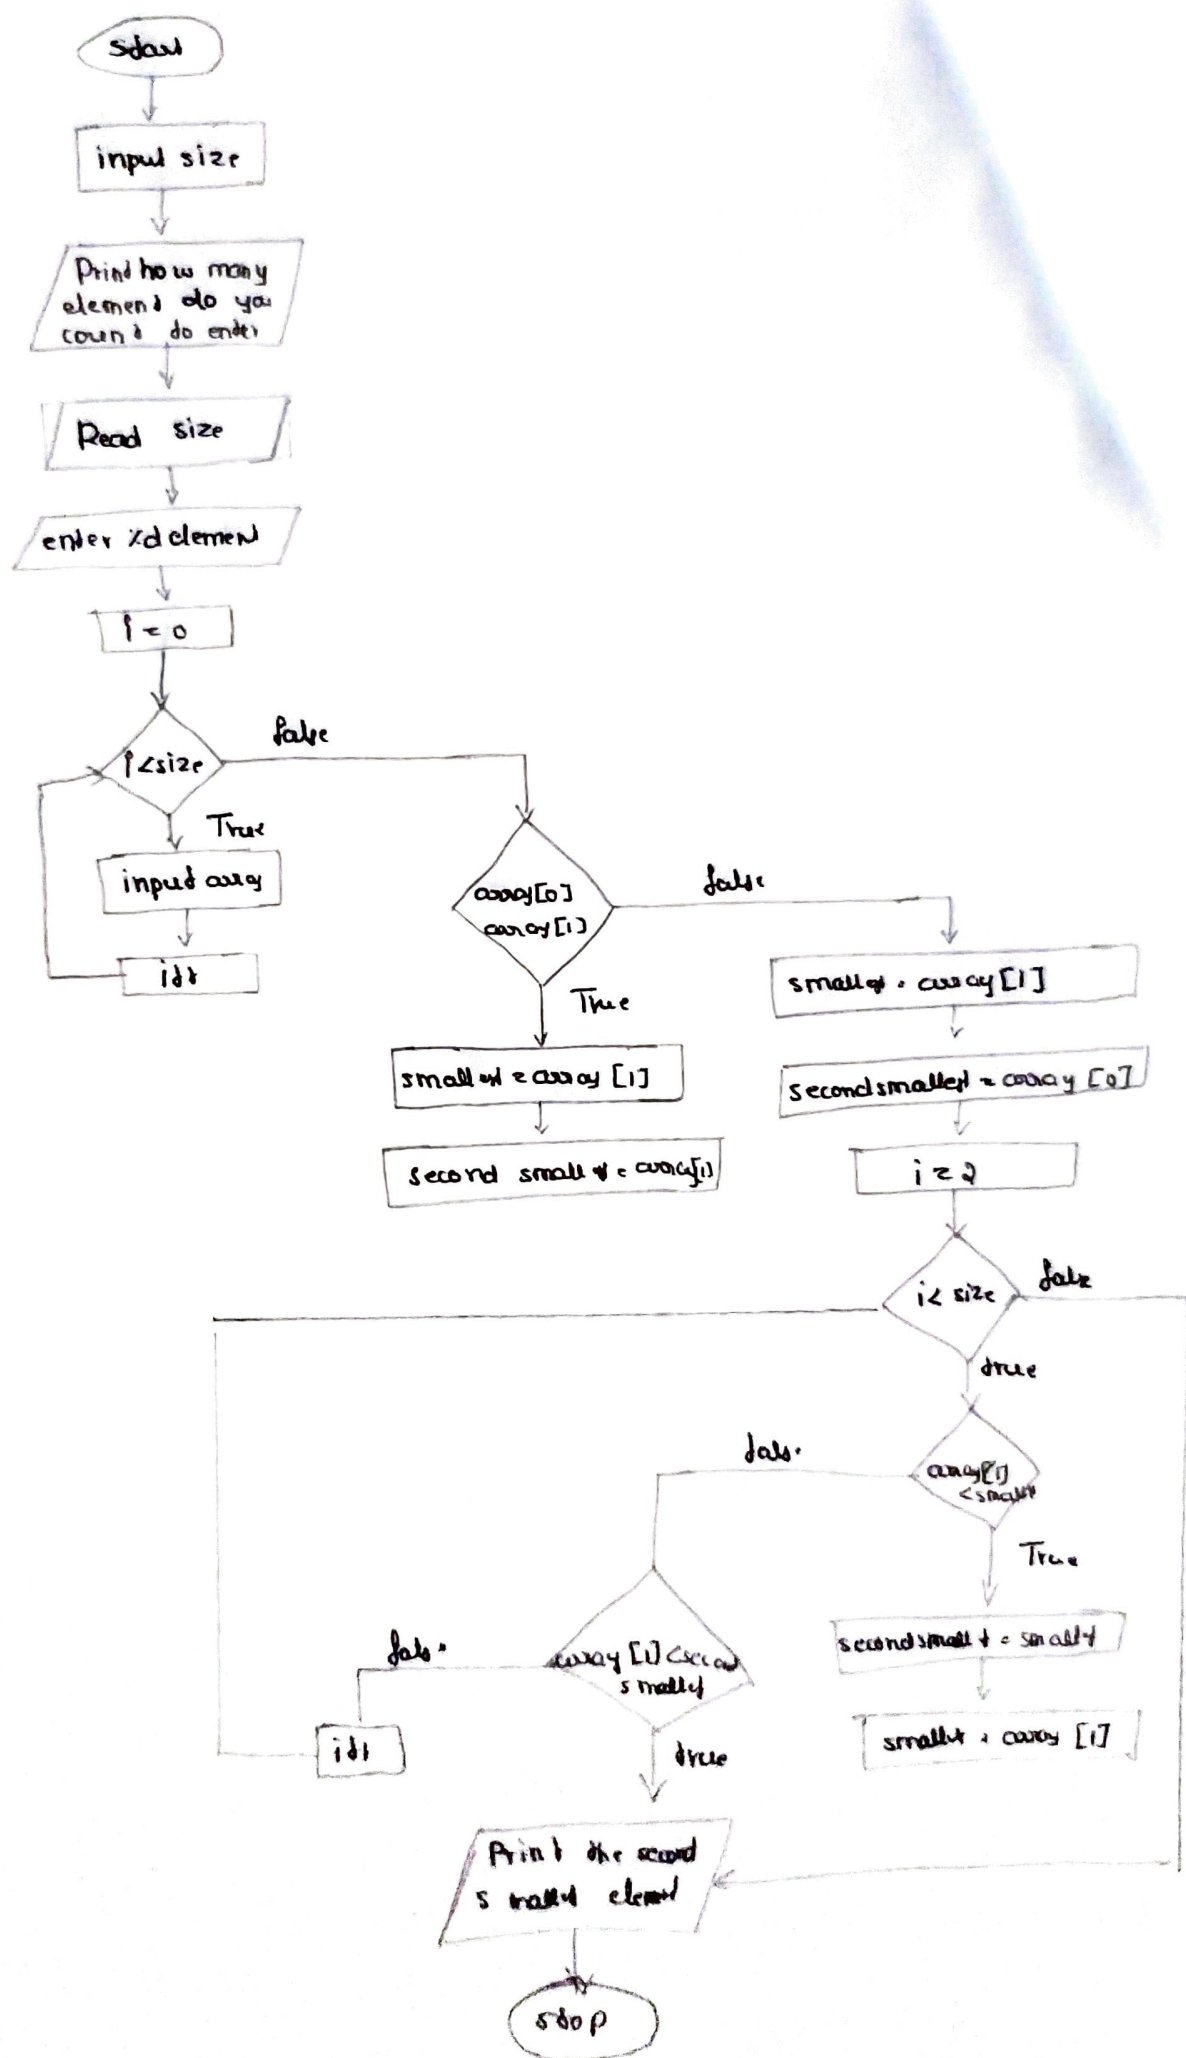 Start
input size
Print how many
element do you
count to enter
Read size
enter %d element
i = 0
i<size
false
True
input array
i++
array[0]
array[1]
false
True
smallest = array [1]
second smallest = array[1]
smallest = array [1]
secondsmallest = array [0]
i = 2
i< size
false
true
array[i]
<smallest
false
True
secondsmallest = smallest
smallest = array [i]
array [i] <second
smallest
false
i++
true
Print the second
smallest element
stop